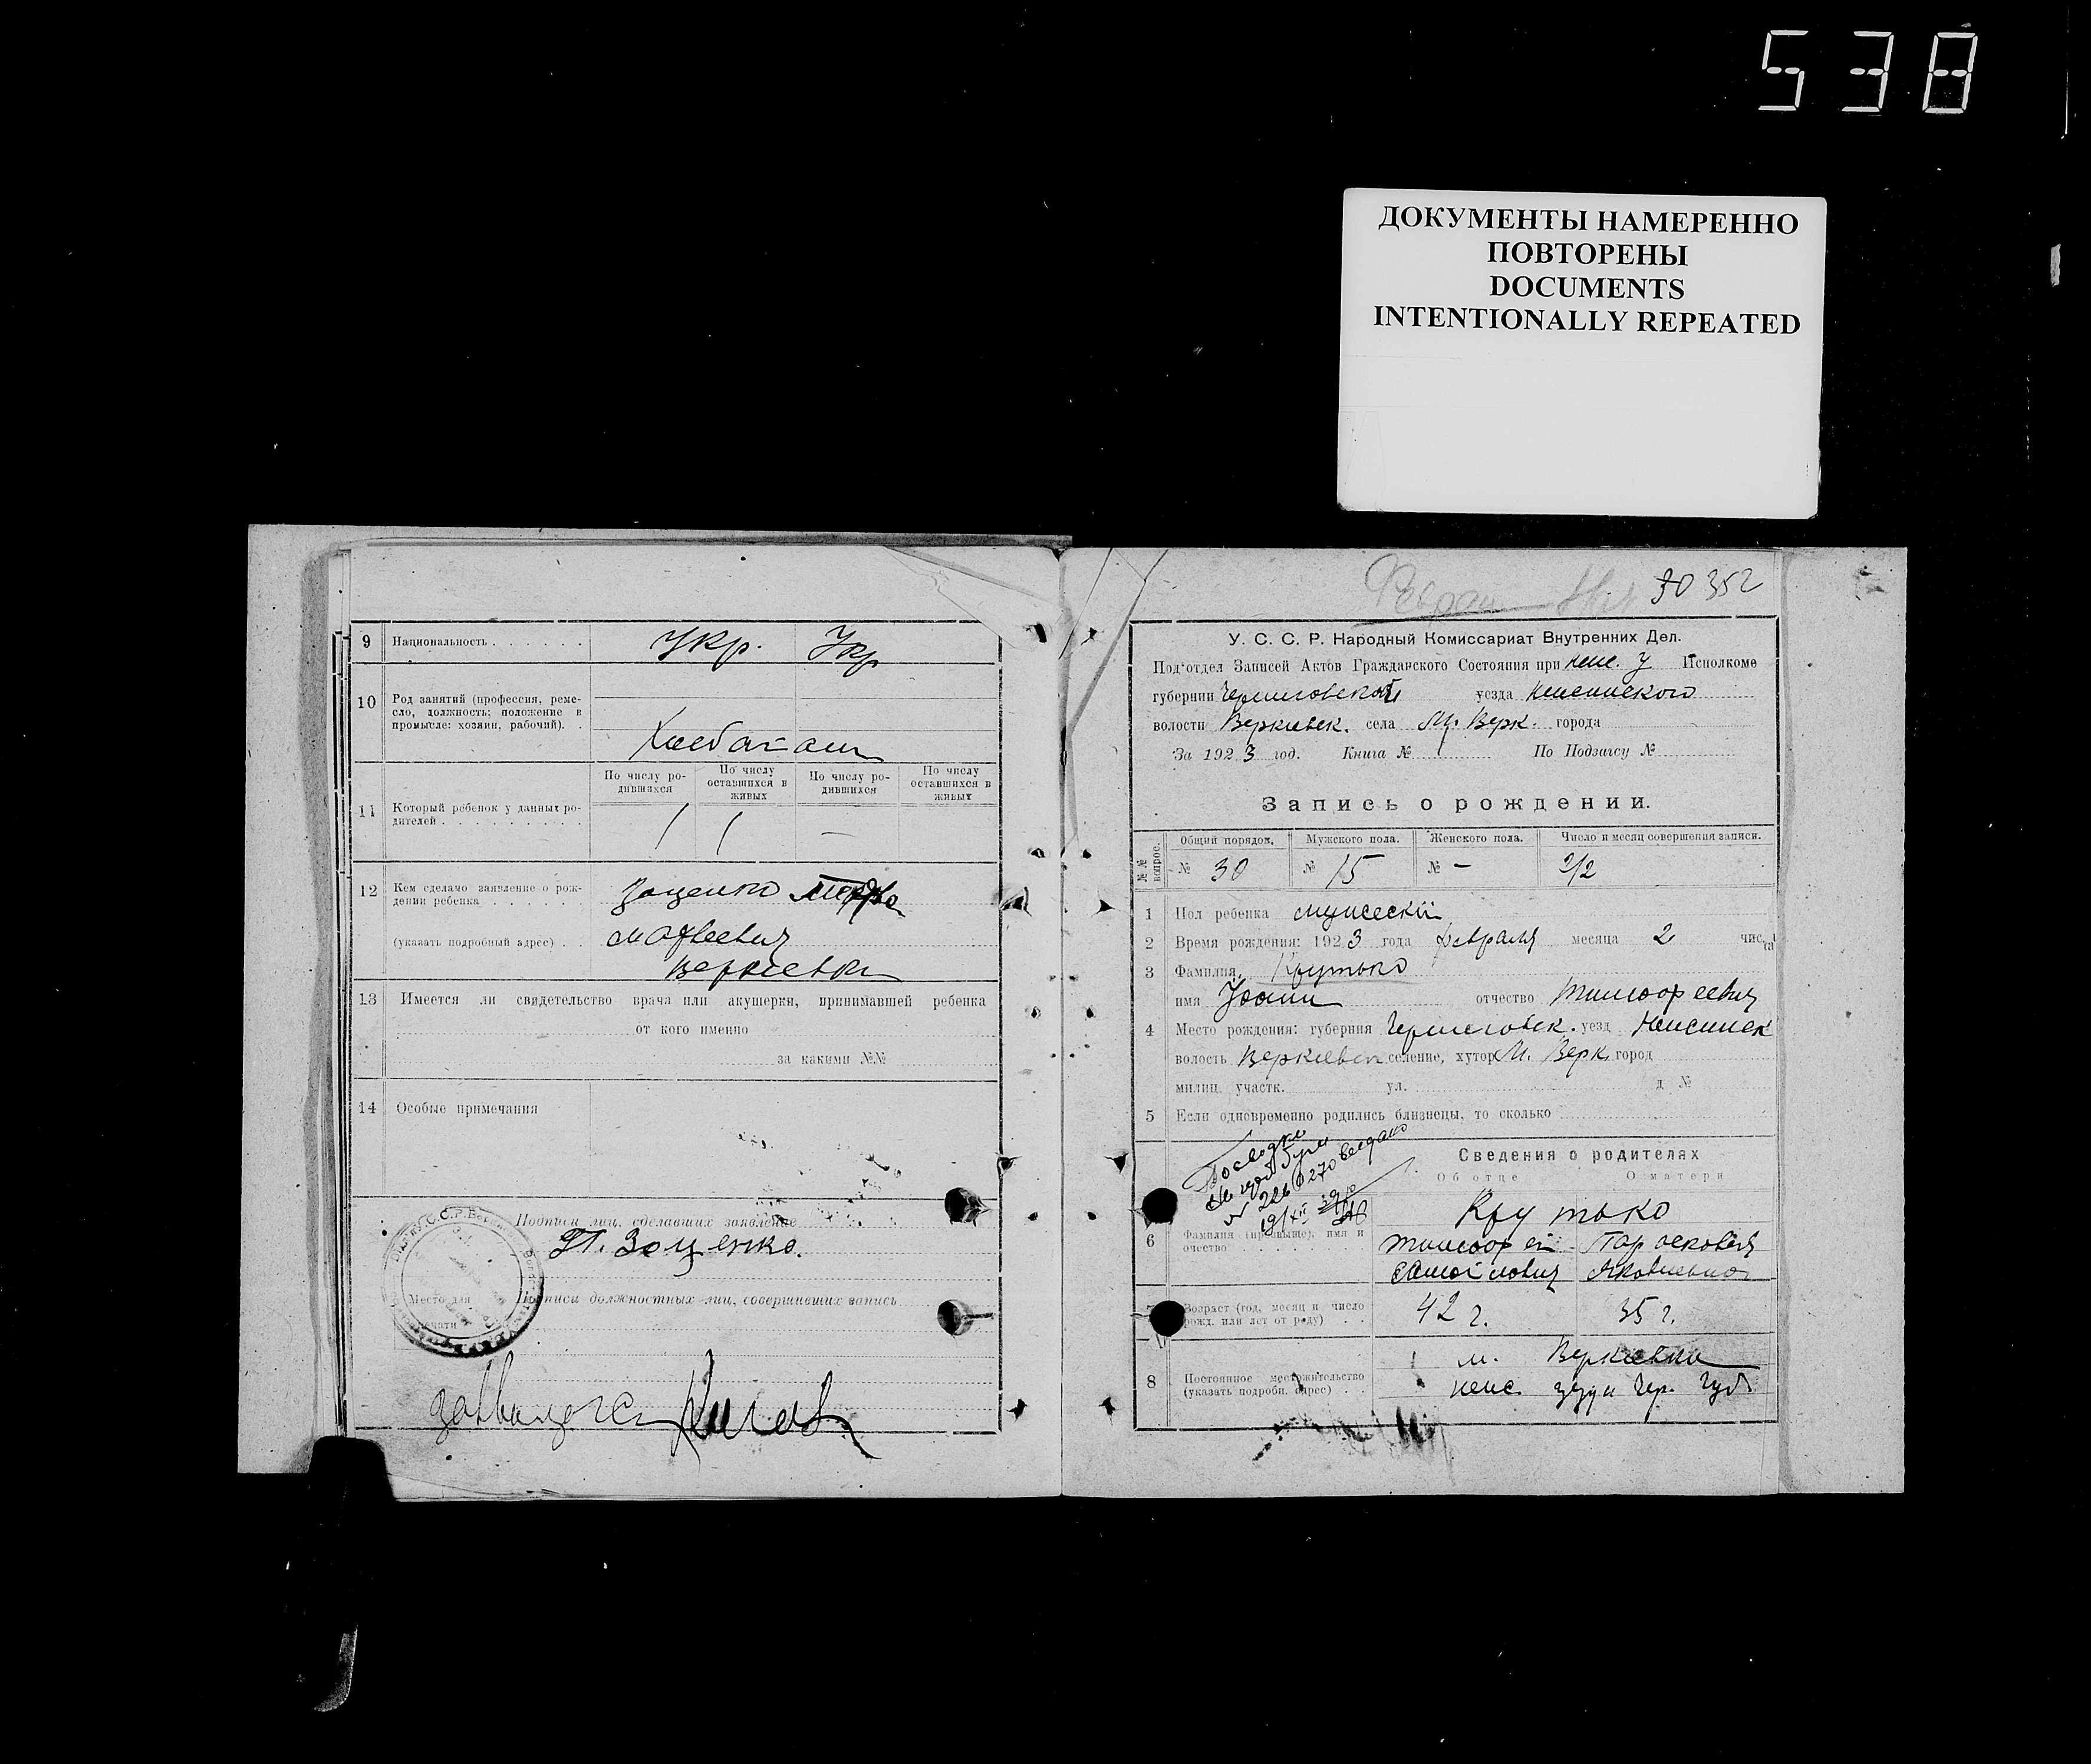 538
ДОКУМЕНТЫ НАМЕРЕННО
ПОВТОРЕНЫ
DOCUMENTS
INTENTIONALLY REPEATED
9 Национальность . . . . . . Укр. Укр
10 Род занятий (профессия, реме-
сло, должность; положение в
промысле: хозяин, рабочий). .
По числу ро-
дившихся
По числу
оставшихся в
живых
По числу ро-
дившихся
По числу
оставшихся в
живых
11 Который ребенок у данных ро-
дителей . . . . . . . . . 1 1 —
12 Кем сделано заявление о рож-
дении ребенка . . . . . . Зоценко
(указать подробный адрес) . . Матвеевич
Веркиевки
13 Имеется ли свидетельство врача или акушерки, принимавшей ребенка
от кого именно
за какими №№
14 Особые примечания
Подписи лиц, сделавших заявление
П. Зоценко.
Место для
печати
Подписи должностных лиц, совершивших запись
30 352
У. С. С. Р. Народный Комиссариат Внутренних Дел.
Под‘отдел Записей Актов Гражданского Состояния при Неж. У Исполкоме
губернии Черниговской уезда Неженского
волости Веркиевск. села М. Верк. города
За 1923 год. Книга № 1 По Подзагсу №
Запись о рождении.
№№ вопрос.
Общий порядок. Мужского пола. Женского пола. Число и месяц совершения записи.
№ 30 № 15 № — 2/2
1 Пол ребенка мужеский
2 Время рождения: 1923 года февраля месяца 2 числа
3 Фамилия, Крутько
имя Иоанн отчество Тимофеевич
4 Место рождения: губерния Черниговск. уезд Нежинск
волость Веркиевск селение, хутор М. Верк. город
милиц. участк. ул. д №
5 Если одновременно родились близнецы, то сколько
Сведения о родителях
Об отце О матери
№ 226 270
6 Фамилия (прозвище), имя и
очество . . . . . .
Крутько
Тимофей Парасковия
Самойлович Яковлевна
Возраст (год, месяц и число
рожд. или лет от роду) . . 42 г. 35 г.
8 Постоянное местожительство
(указать подробн. адрес) . .
м. Веркиевки
Неж. уезда Чер. Губ